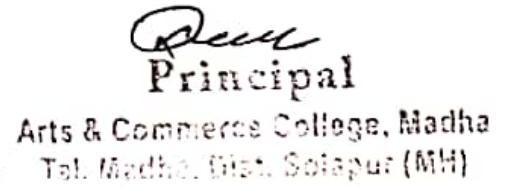 Principal
Arts & Commerce College, Madha
Tal. Madha, Dist. Solapur (MH)